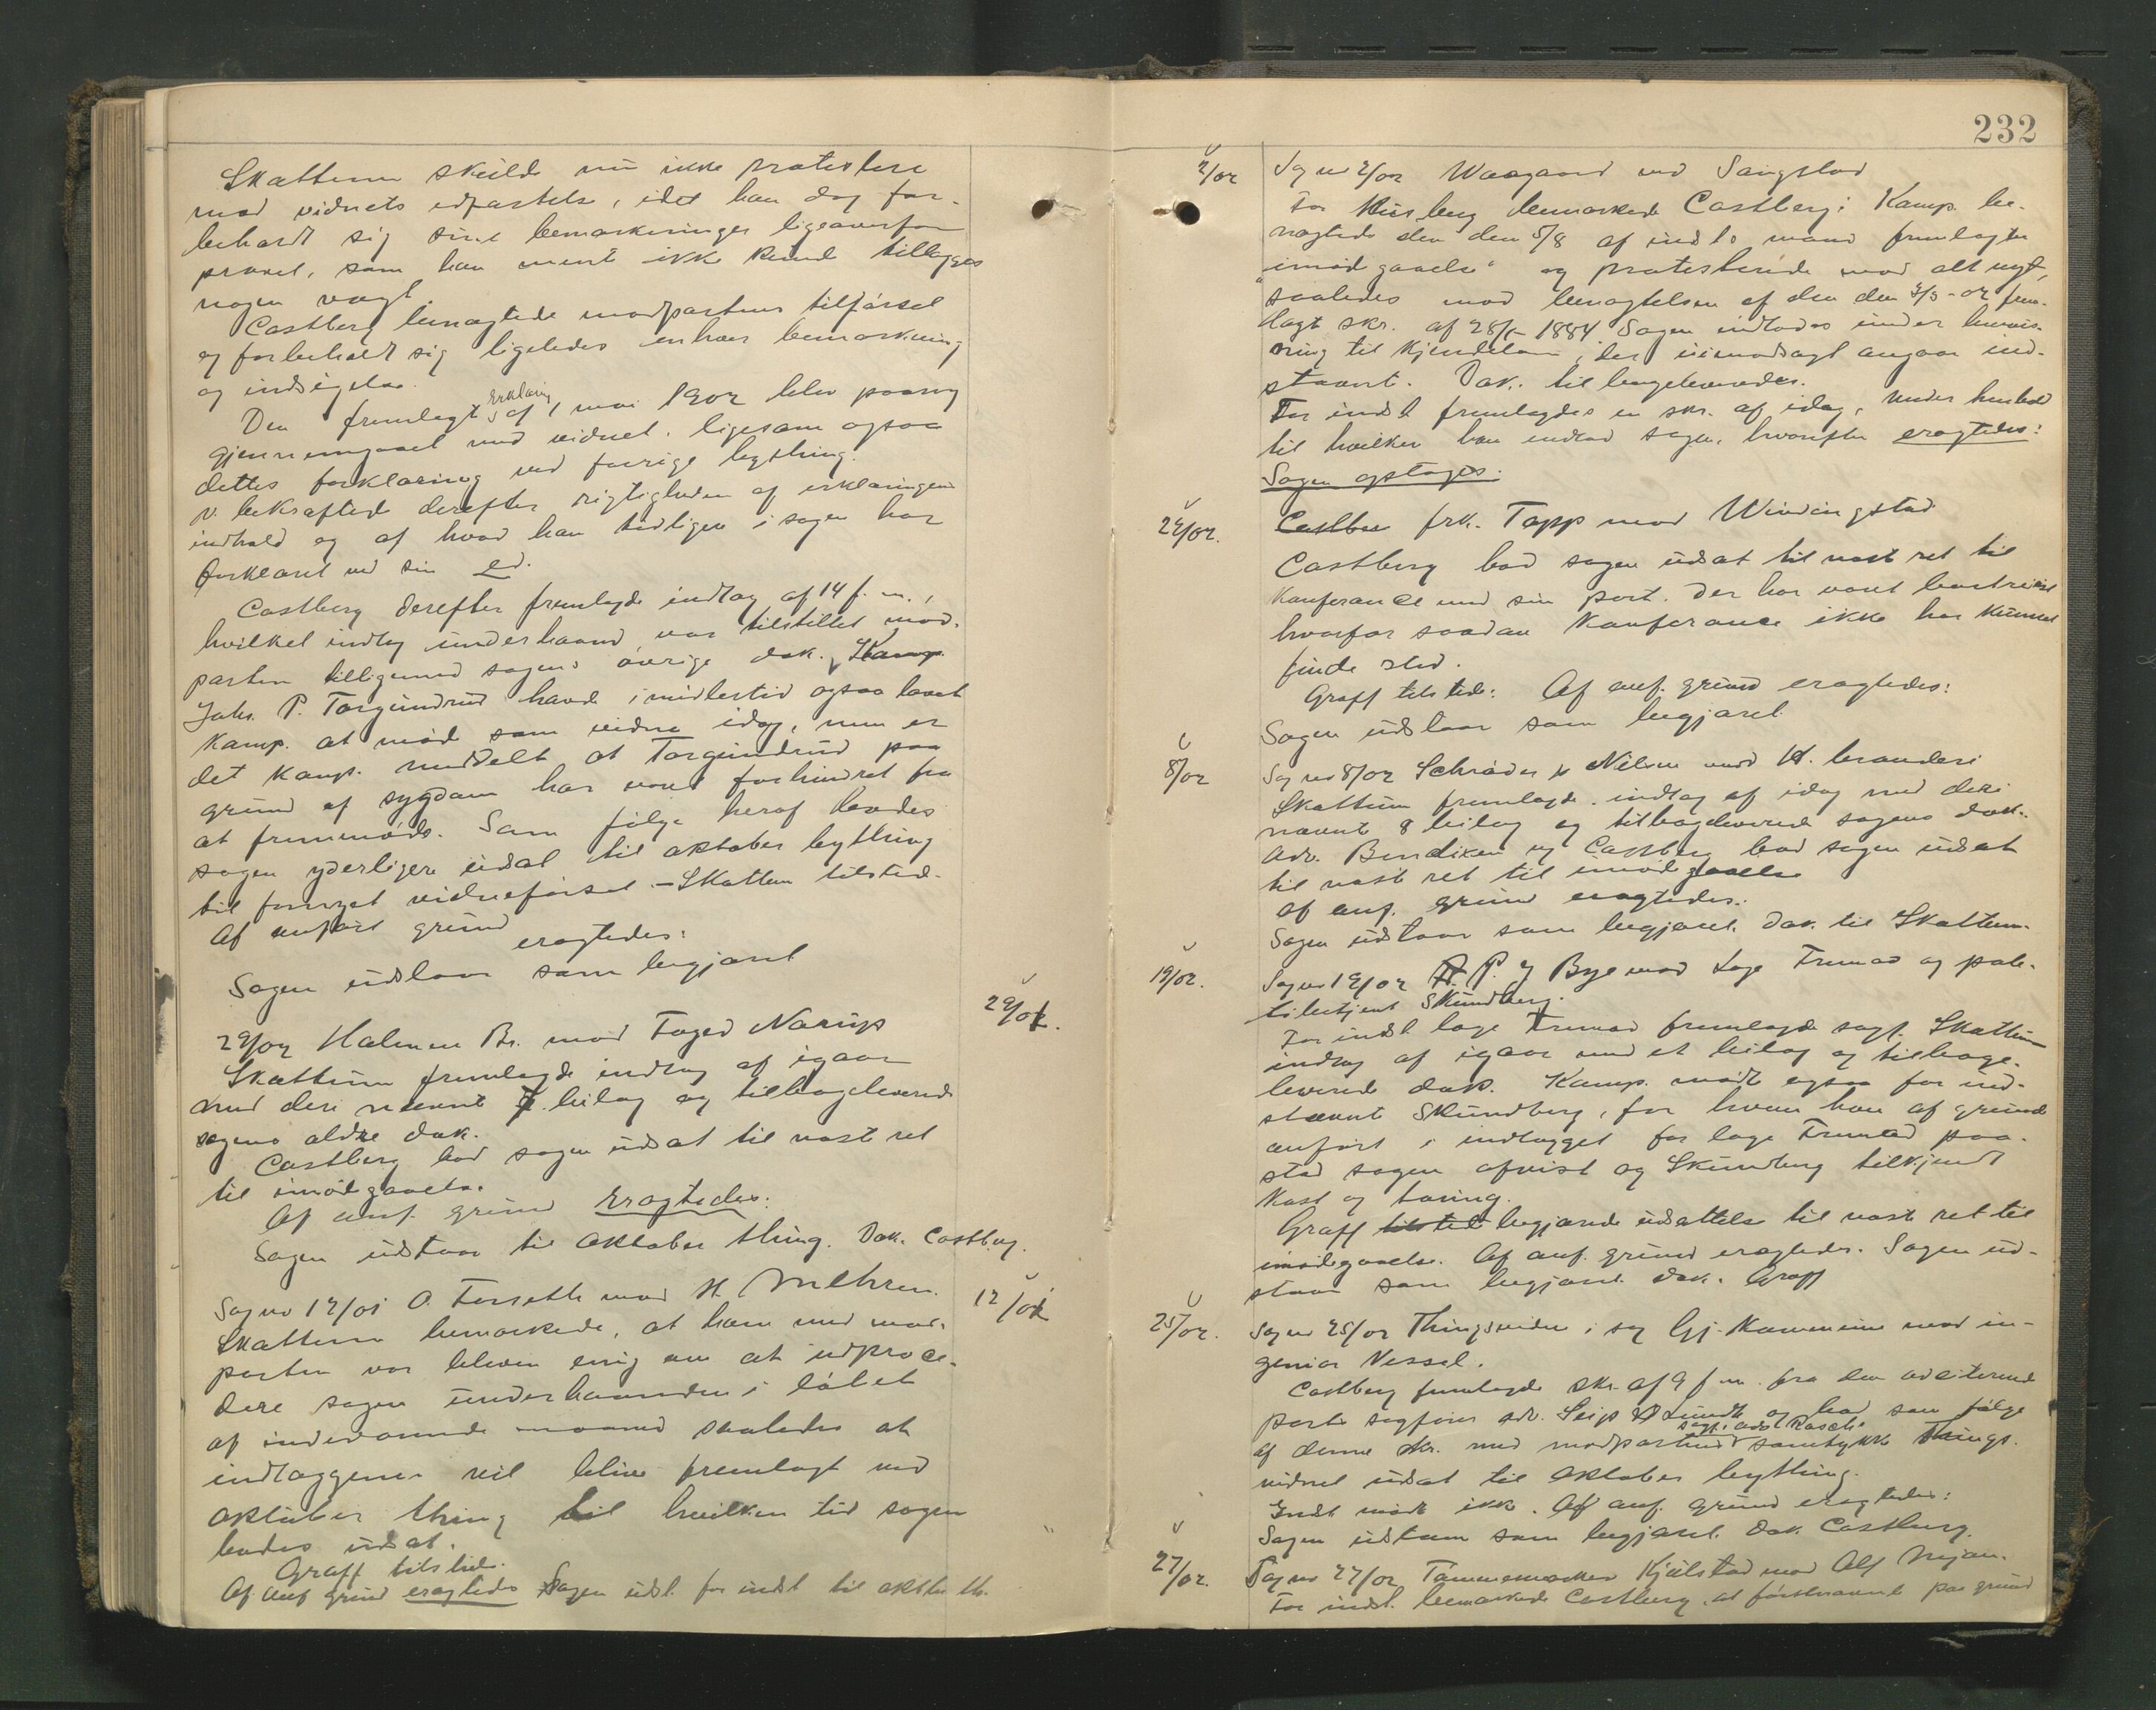 Skattum skulde nu ikke protestere
mod vidnets edfæstelse, idet han dog for-
beholdt sig sine bemærkninger ligeoverfor
prøvet, som han mente ikke kunde tillægges
nogen vægt.
Castberg benægtede modpartens tilførsel
og forbeholdt sig ligeledes enhver bemærkning
og indsigelse.
Den fremlagte erklæring af 1 mai 1902 blev paany
gjennemgaaet med vidnet, ligesom ogsaa
dettes forklaring ved forrige bygthing.
V. bekræftede derefter rigtigheden af erklæringens
indhold og af hvad han tidligere i sagen har
forklaret ved sin ed.
Castberg derefter fremlagde indlæg af 14 f. m.,
hvilket indlæg underhaand var tilstillet mod-
parten tilligemed sagens øvrige dok. Kamp.
Johs. P. Torgundrud havde imidlertid ogsaa lovet
Kamp. at møde som vidne idag, men er
det Kamp. meddelt at Torgundrud paa
grund af sygdom har været forhindret fra
at fremmøde. Som følge heraf bades
sagen yderligere udsat til oktober bygthing
til fornyet vidneførsel. - Skattum tilstede.
Af anført grund
eragtedes:
Sagen udstaar som begjæret
29/02.
29/02 Halmen Br. mod Foged Narup
Skattum fremlagde indlæg af igaar
med deri nævnte bilag og tilbageleverede
sagens ældre dok.
Castberg bad sagen udsat til næste ret
til imødegaaelse.
Af anf. grund eragtedes:
Sagen udstaar til Oktober thing. Dok. Castberg.
12/01
Sag no 12/01 O. Forseth mod H. Mehren.
Skattum bemærkede, at han med mod-
parten var bleven enig om at udproce-
dere sagen underhaanden i løbet
af indeværende maaned saaledes at
indlæggene vil blive fremlagt ved
oktober thing til hvilken tid sagen
bades udsat.
Graff tilstede.
Af anf grund eragtedes Sagen udst. for indst til oktbr th.
232
2/02
Sag no 2/02 Waagaard mod Sangstad
For bemærkede Castberg: Kamp. be-
nægtede den den 5/8 af indst.s mand fremlagte
"imødegaaelse" og protesterede mod alt nyt,
saaledes mod benægtelsen af den den 3/3-02 frem-
lagte skr. af 28/5 1884. Sagen indlodes under henvis-
ning til kjendelsen, der uimodsagt angaar ind-
stævnte. Dok. tilbageleveredes.
For indst fremlagdes en skr. af idag, under henhold
til hvilken han indlod sagen, hvorefter eragtedes:
Sagen optages.
24/02.
Castber frk. Topp mod Windingstad
Castberg bad sagen udsat til næste ret til
Konferance med sin part. Der har været bortreist
hvorfor saadan Konferance ikke har kunnet
finde sted.
Graff tilstede: Af anf. grund eragtedes:
Sagen udstaar som begjæret
8/02
Sag no 8/02 Schrøder & Nilsen mod H. brænderi
Skattum fremlagde indlæg af idag med deri
nævnte 8 bilag og tilbageleverede sagens dok..
Adv. Bendixen og Castberg bad sagen udsat
til næste ret til imødegaaelse
Af anf. grund eragtedes.
Sagen udstaar som begjæret. Dok. til Skattum.
19/02.
Sag no 19/02 A. P. J Bye mod Loge Fremad og poli-
tibetjent Skundberg.
For indst loge Fremad fremlagde sagf. Skattum
indlæg af igaar med et bilag og tilbage-
leverede dok. Kamp. mødte ogsaa for ind-
stævnte Skundberg, for hvem han af grunde
anført i indlægget for loge Fremad paa-
stod sagen afvist og Skundberg tilkjendt
kost og tæring.
Graff tilsted begjærede udsættelse til næste ret til
imødegaaelse. Af anf. grund eragtedes. Sagen ud-
staar som begjæret. Dok. Graff
25/02.
Sag no 25/02 Thingsvidne i sag Gj. Kommune mod in-
geniør Vessel.
Castberg fremlagde skr. af 9 f m. fra den adciterende
parts sagfører adv. Seip & Lundh og bad som følge
af denne skr. med modpartens sagf. adv. Rasch's samtykke things-
vidnet udsat til Oktober bygthing.
Indst mødte ikke. Af anf. grund eragtedes:
Sagen udstaar som begjæret. Dok. Castberg.
27/02.
Sag no 27/02 Tømmermester Kjølstad mod Alf Mejan.
For indst. bemærkede Castberg, at førstnævnte paa grund